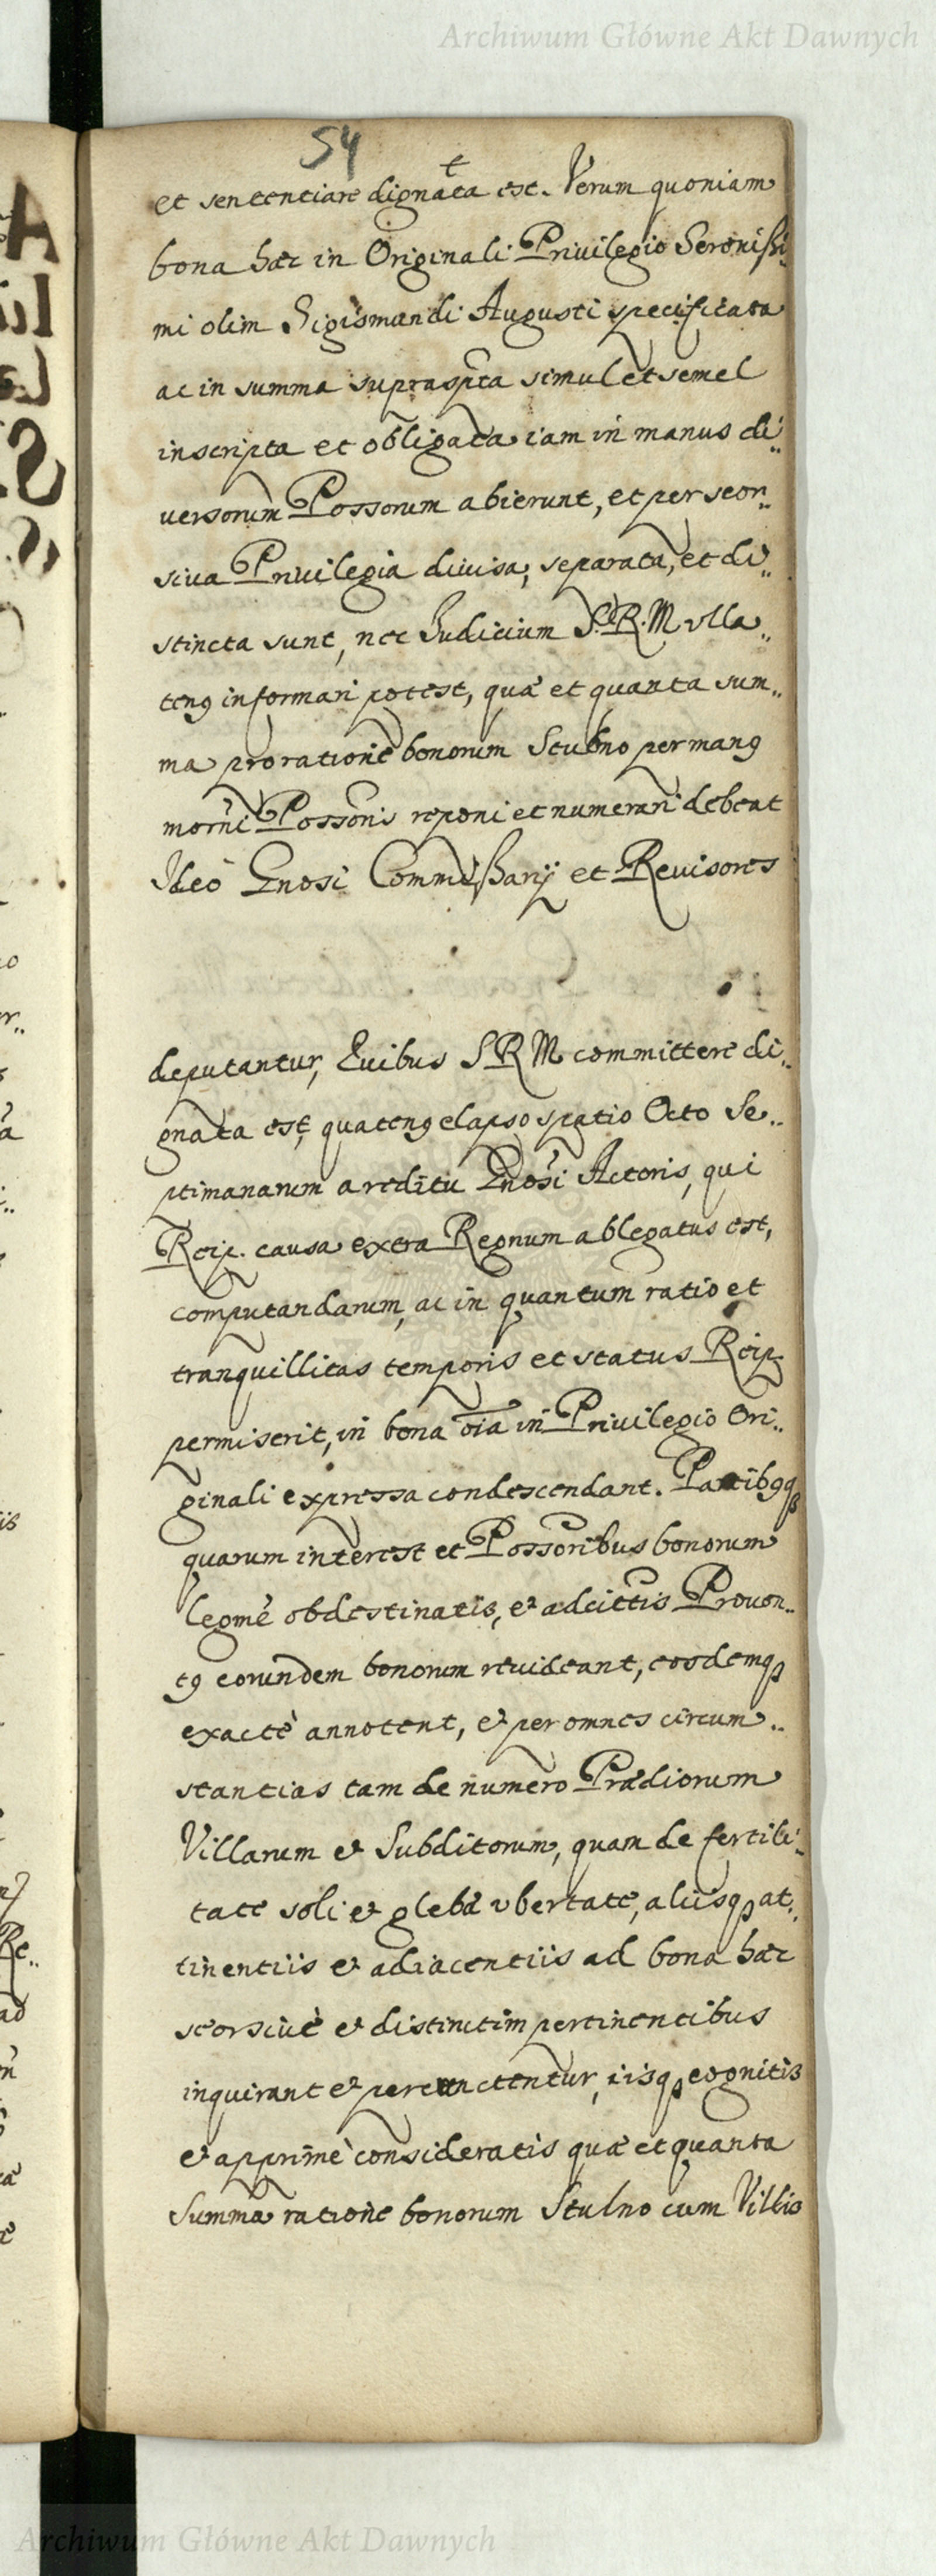 Archiwum Główne Akt Dawnych
54
et sententiare dignata est. Verum quoniam
bona hæc in Originali Privilegio Serenißi„
mi olim Sigismundi Augusti specificata
ac in summa supraspta simul et semel
inscripta et obligata iam in manus di„
uersorum Possorum abierunt, et per seor„
siua Priuilegia diuisa, separata, et di„
stincta sunt, nec Iudicium S.R.M. vlla„
teng informari potest, quæ et quanta sum„
ma pro ratione bonorum Stulno per mang
morni Possoris reponi et numerari debeat
Ideò Gnosi Commißarij et Reuisores
deputantur, Quibus S R M committere di„
gnata est, quateng elapso spatio Octo Se„
ptimanarum a reditu Gnosi Actoris, qui
Reip. causa extra Regnum ablegatus est,
computandarum, ac in quantum ratio et
tranquillitas temporis et status Reip
permiserit, in bona oia in Priuilegio Ori„
ginali expressa condescendant. Partibgq
quarum interest et Possoribus bonorum
legme obdestinatis, et adcittis Prouen„
tg eorundem bonorum reuideant, eosdemq
exactè annotent, et per omnes circum„
stantias tam de numero Prædiorum
Villarum et Subditorum, quam de fertili„
tate soli et glebæ vbertate, aliisq at„
tinentiis et adiacentiis ad bona hæc
seorsiuè et distinctim pertinentibus
inquirant et percunctentur, iisq cognitis
et apprimè consideratis quæ et quanta
Summa ratione bonorum Stulno cum Villis
Archiwum Główne Akt Dawnych